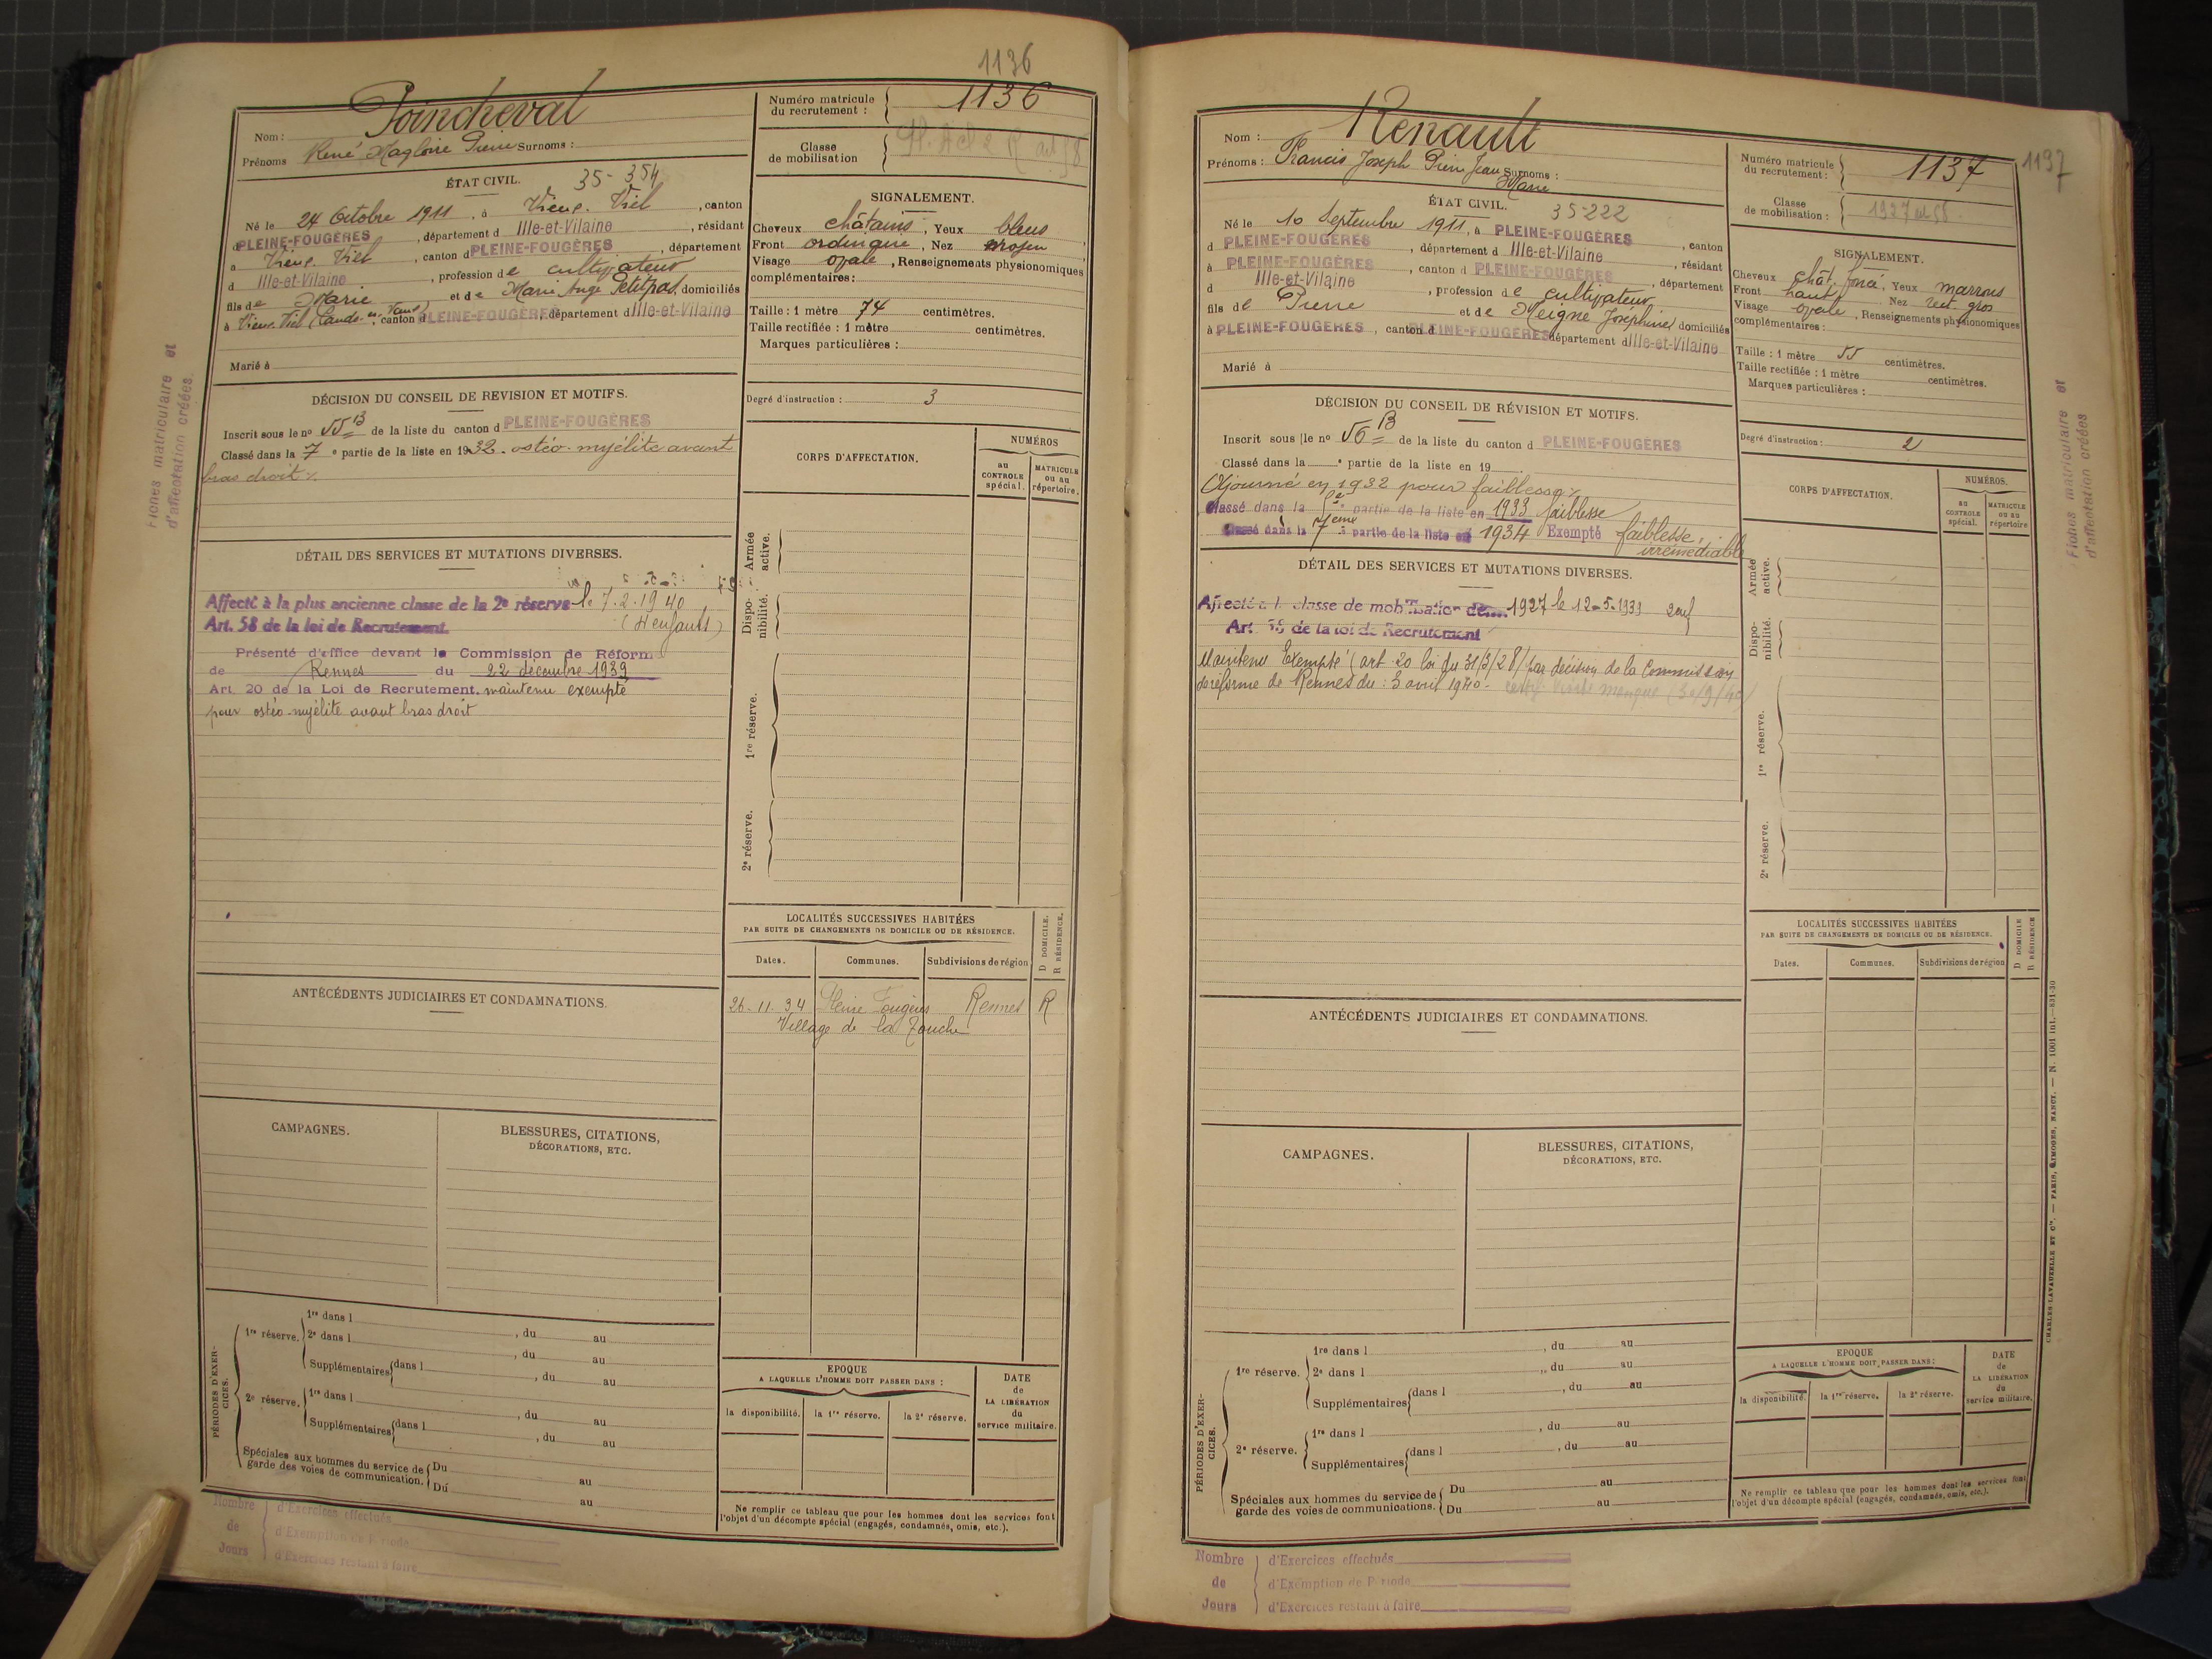 1136
Nom : Poincheval
Prénoms René Magloire Pierre Surnoms :
Numéro matricule du recrutement : 1136
Classe de mobilisation
ÉTAT CIVIL. 35-354
Né le 24 Octobre 1911, à Vieux-Viel, canton
d PLEINE-FOUGÈRES, département d Ille-et-Vilaine, résidant
à Vieux Viel, canton d PLEINE-FOUGÈRES, département
d Ille-et-Vilaine, profession de cultivateur
fils de Marie et de Marie Ange Petitpas, domiciliés
à Vieux-Viel, canton d PLEINE-FOUGÈRES département d Ille-et-Vilaine
Marié à
SIGNALEMENT.
Cheveux châtains, Yeux bleus
Front ordinaire, Nez moyen
Visage ovale, Renseignements physionomiques
complémentaires :
Taille : 1 mètre 74 centimètres.
Taille rectifiée : 1 mètre centimètres.
Marques particulières :
Degré d'instruction : 3
DÉCISION DU CONSEIL DE REVISION ET MOTIFS.
Inscrit sous le no 55 B de la liste du canton d PLEINE-FOUGÈRES
Classé dans la 7e partie de la liste en 1932. ostéo-myélite avant
bras droit %
DÉTAIL DES SERVICES ET MUTATIONS DIVERSES.
Affecté à la plus ancienne classe de la 2e réserve le 7.2.1940
Art. 58 de la loi de Recrutement. (4 enfants)
Présenté d'office devant la Commission de Réforme
de Rennes du 22 décembre 1939
Art. 20 de la Loi de Recrutement. maintenu exempté
pour ostéo-myélite avant bras droit
CORPS D'AFFECTATION.
NUMÉROS
au CONTROLE spécial.
MATRICULE ou au répertoire.
Armée active.
Disponibilité.
1re réserve.
2e réserve.
LOCALITÉS SUCCESSIVES HABITÉES
PAR SUITE DE CHANGEMENTS DE DOMICILE OU DE RÉSIDENCE.
D DOMICILE.
R RÉSIDENCE.
Dates. Communes. Subdivisions de région
26-11-34 Pleine Fougères Rennes R
Village de la Touche
ANTÉCÉDENTS JUDICIAIRES ET CONDAMNATIONS.
CAMPAGNES.
BLESSURES, CITATIONS,
DÉCORATIONS, ETC.
PÉRIODES D'EXERCICES.
1re réserve. 1re dans l , du au
2e dans l , du au
Supplémentaires dans l , du au
2e réserve. 1re dans l , du au
Supplémentaires dans l , du au
Spéciales aux hommes du service de garde des voies de communication. Du au
Du au
EPOQUE
A LAQUELLE L'HOMME DOIT PASSER DANS :
la disponibilité. la 1re réserve. la 2e réserve.
DATE de LA LIBÉRATION du service militaire.
Ne remplir ce tableau que pour les hommes dont les services font
l'objet d'un décompte spécial (engagés, condamnés, omis, etc.).
Nombre de Jours
d'Exercices effectués
d'Exemption de Période
d'Exercices restant à faire
Fiches matriculaire et
d'affectation créées.
1137
Nom : Renault
Prénoms : Francis Joseph Pierre Jean Surnoms :
Marie
Numéro matricule du recrutement : 1137
Classe de mobilisation : 1927
ÉTAT CIVIL. 35-222
Né le 10 Septembre 1911, à PLEINE-FOUGÈRES, canton
d PLEINE-FOUGÈRES, département d Ille-et-Vilaine, résidant
à PLEINE-FOUGÈRES, canton d PLEINE-FOUGÈRES
d Ille-et-Vilaine, profession de cultivateur
fils de Pierre et de Meigné Joséphine domiciliés
à PLEINE-FOUGÈRES, canton d PLEINE-FOUGÈRES département d Ille-et-Vilaine
Marié à
SIGNALEMENT.
Cheveux chât. foncé. Yeux marrons
Front haut. Nez rect. gros
Visage ovale, Renseignements physionomiques
complémentaires :
Taille : 1 mètre 55 centimètres.
Taille rectifiée : 1 mètre centimètres.
Marques particulières :
Degré d'instruction : 2
DÉCISION DU CONSEIL DE RÉVISION ET MOTIFS.
Inscrit sous le no 56 B de la liste du canton d PLEINE-FOUGÈRES
Classé dans la e partie de la liste en 19
Ajourné en 1932 pour faiblesse %
Classé dans la partie de la liste en 1933 faiblesse
Classé dans la 7ème partie de la liste en 1934 Exempté faiblesse,
irrémédiable
DÉTAIL DES SERVICES ET MUTATIONS DIVERSES.
Affecté à la classe de mobilisation de 1927 le 12-5-1939 2 enf
Art. 58 de la loi de Recrutement
Maintenu Exempté (art. 20 loi du 31/3/28) par décision de la Commission
de réforme de Rennes du : 3 avril 1940 -
CORPS D'AFFECTATION.
NUMÉROS.
au CONTROLE spécial.
MATRICULE ou au répertoire
Armée active.
Disponibilité.
1re réserve.
2e réserve.
LOCALITÉS SUCCESSIVES HABITÉES
PAR SUITE DE CHANGEMENTS DE DOMICILE OU DE RÉSIDENCE.
D DOMICILE
R RÉSIDENCE
Dates. Communes. Subdivisions de région
ANTÉCÉDENTS JUDICIAIRES ET CONDAMNATIONS.
CAMPAGNES.
BLESSURES, CITATIONS,
DÉCORATIONS, ETC.
PÉRIODES D'EXERCICES.
1re réserve. 1re dans l , du au
2e dans l , du au
Supplémentaires dans l , du au
2e réserve. 1re dans l , du au
Supplémentaires dans l , du au
Spéciales aux hommes du service de garde des voies de communications. Du au
Du au
EPOQUE
A LAQUELLE L'HOMME DOIT PASSER DANS :
la disponibilité. la 1re réserve. la 2e réserve.
DATE de LA LIBÉRATION du service militaire.
Ne remplir ce tableau que pour les hommes dont les services font
l'objet d'un décompte spécial (engagés, condamnés, omis, etc.).
Nombre de Jours
d'Exercices effectués
d'Exemption de Période
d'Exercices restant à faire
CHARLES-LAVAUZELLE ET Cie. — PARIS, LIMOGES, NANCY. — N. 1001 int.—831-30
Fiches matriculaire et
d'affectation créées